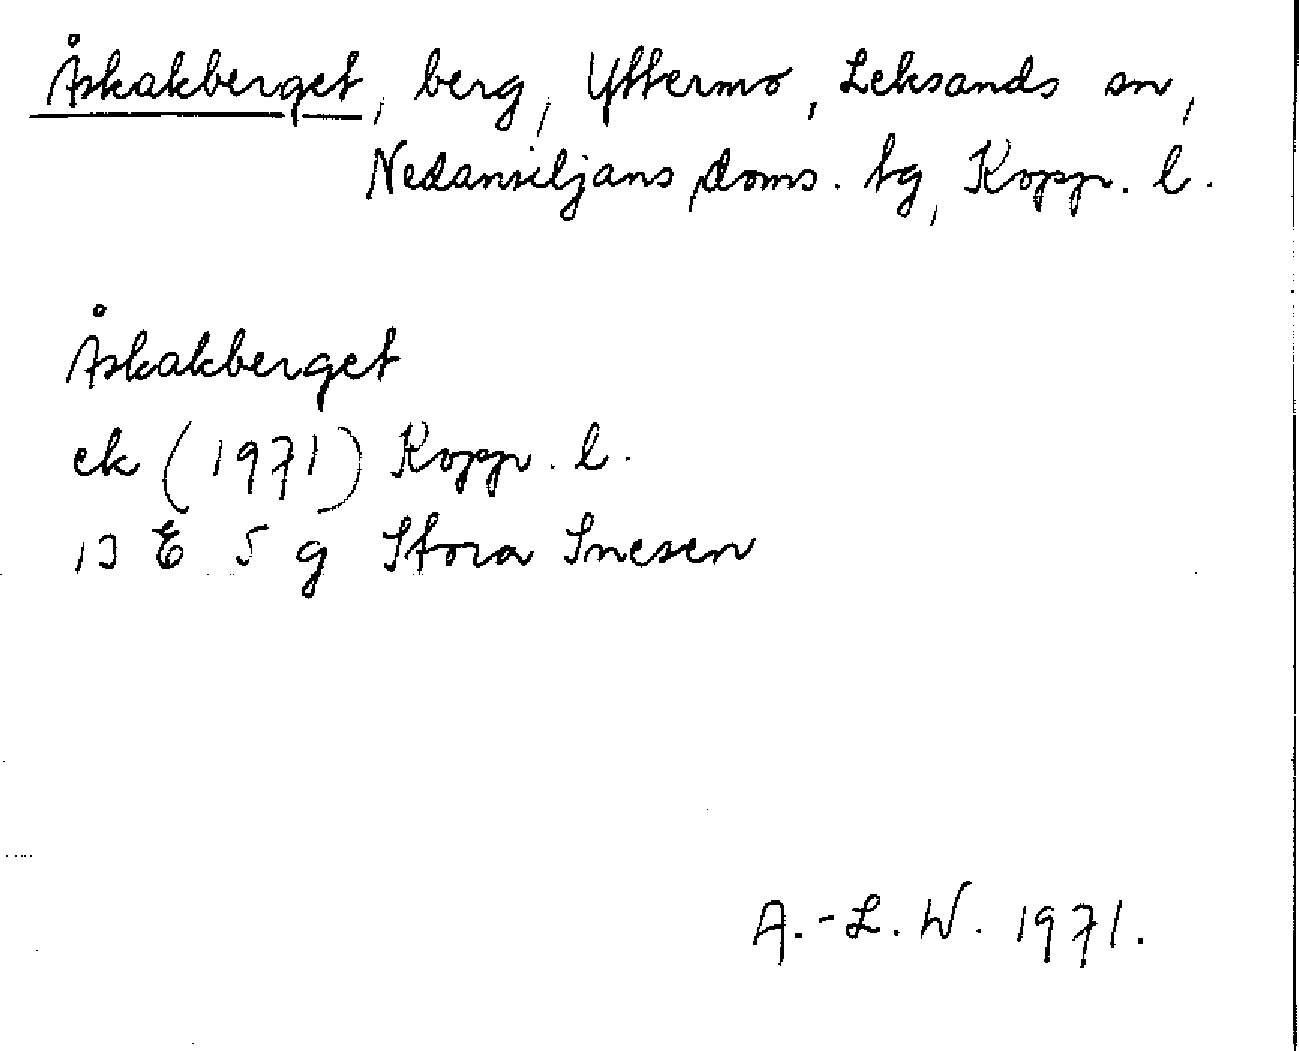 Åskakberget, berg, Yttermo, Leksands sn,
Nedansiljans doms. tg, Kopp. l.
Åskakberget
ek (1971) Kopp. l.
13 E 5 g Stora Snesen
A.-L. W. 1971.